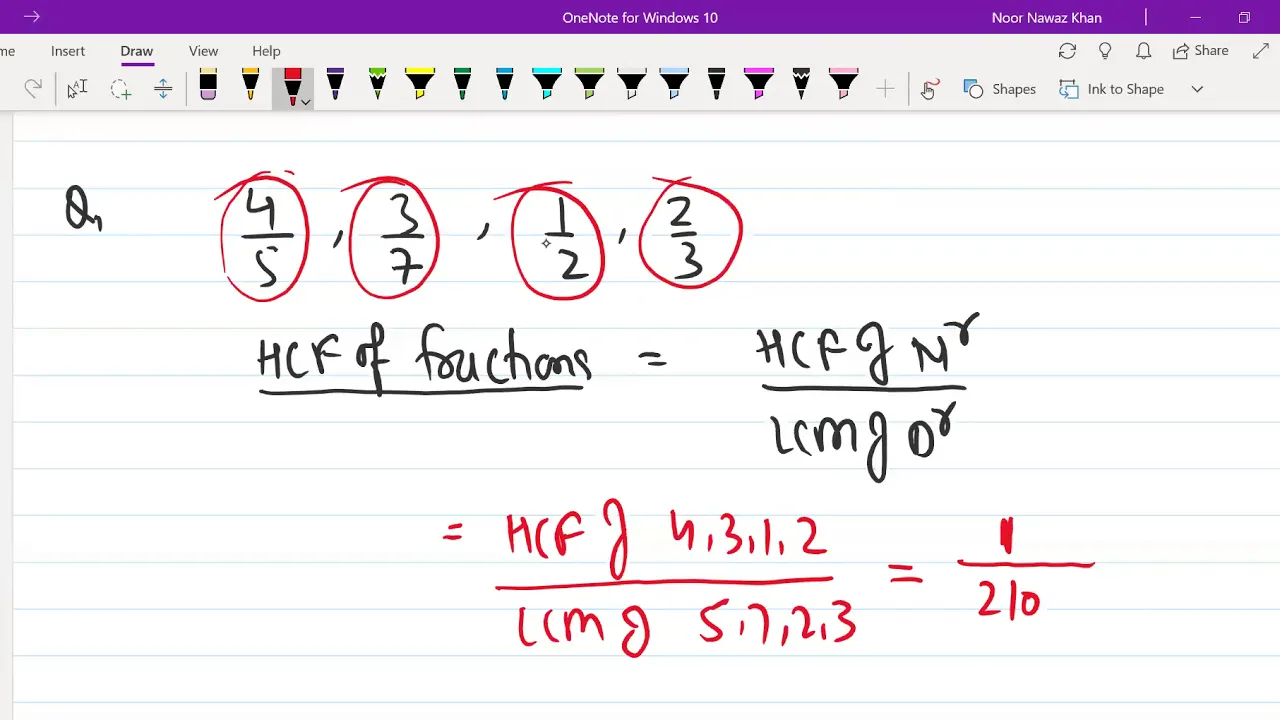 OneNote for Windows 10 Noor Nawaz Khan
me Insert Draw View Help Share
Shapes Ink to Shape
Q1 4/5 , 3/7 , 1/2 , 2/3
HCF of fractions = HCF of Nr
LCM of Dr
= HCF of 4,3,1,2 = 1
LCM of 5,7,2,3 210